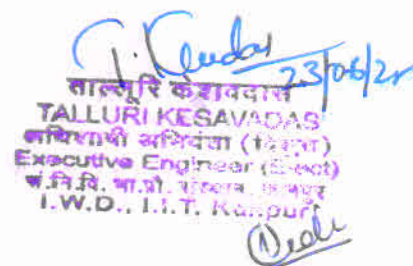 23/06/21
ताल्लूरि केशवदास
TALLURI KESAVADAS
अधिशाषी अभियंता
Executive Engineer (Elect)
भा.प्रौ. कानपुर
I.W.D., I.I.T. Kanpur